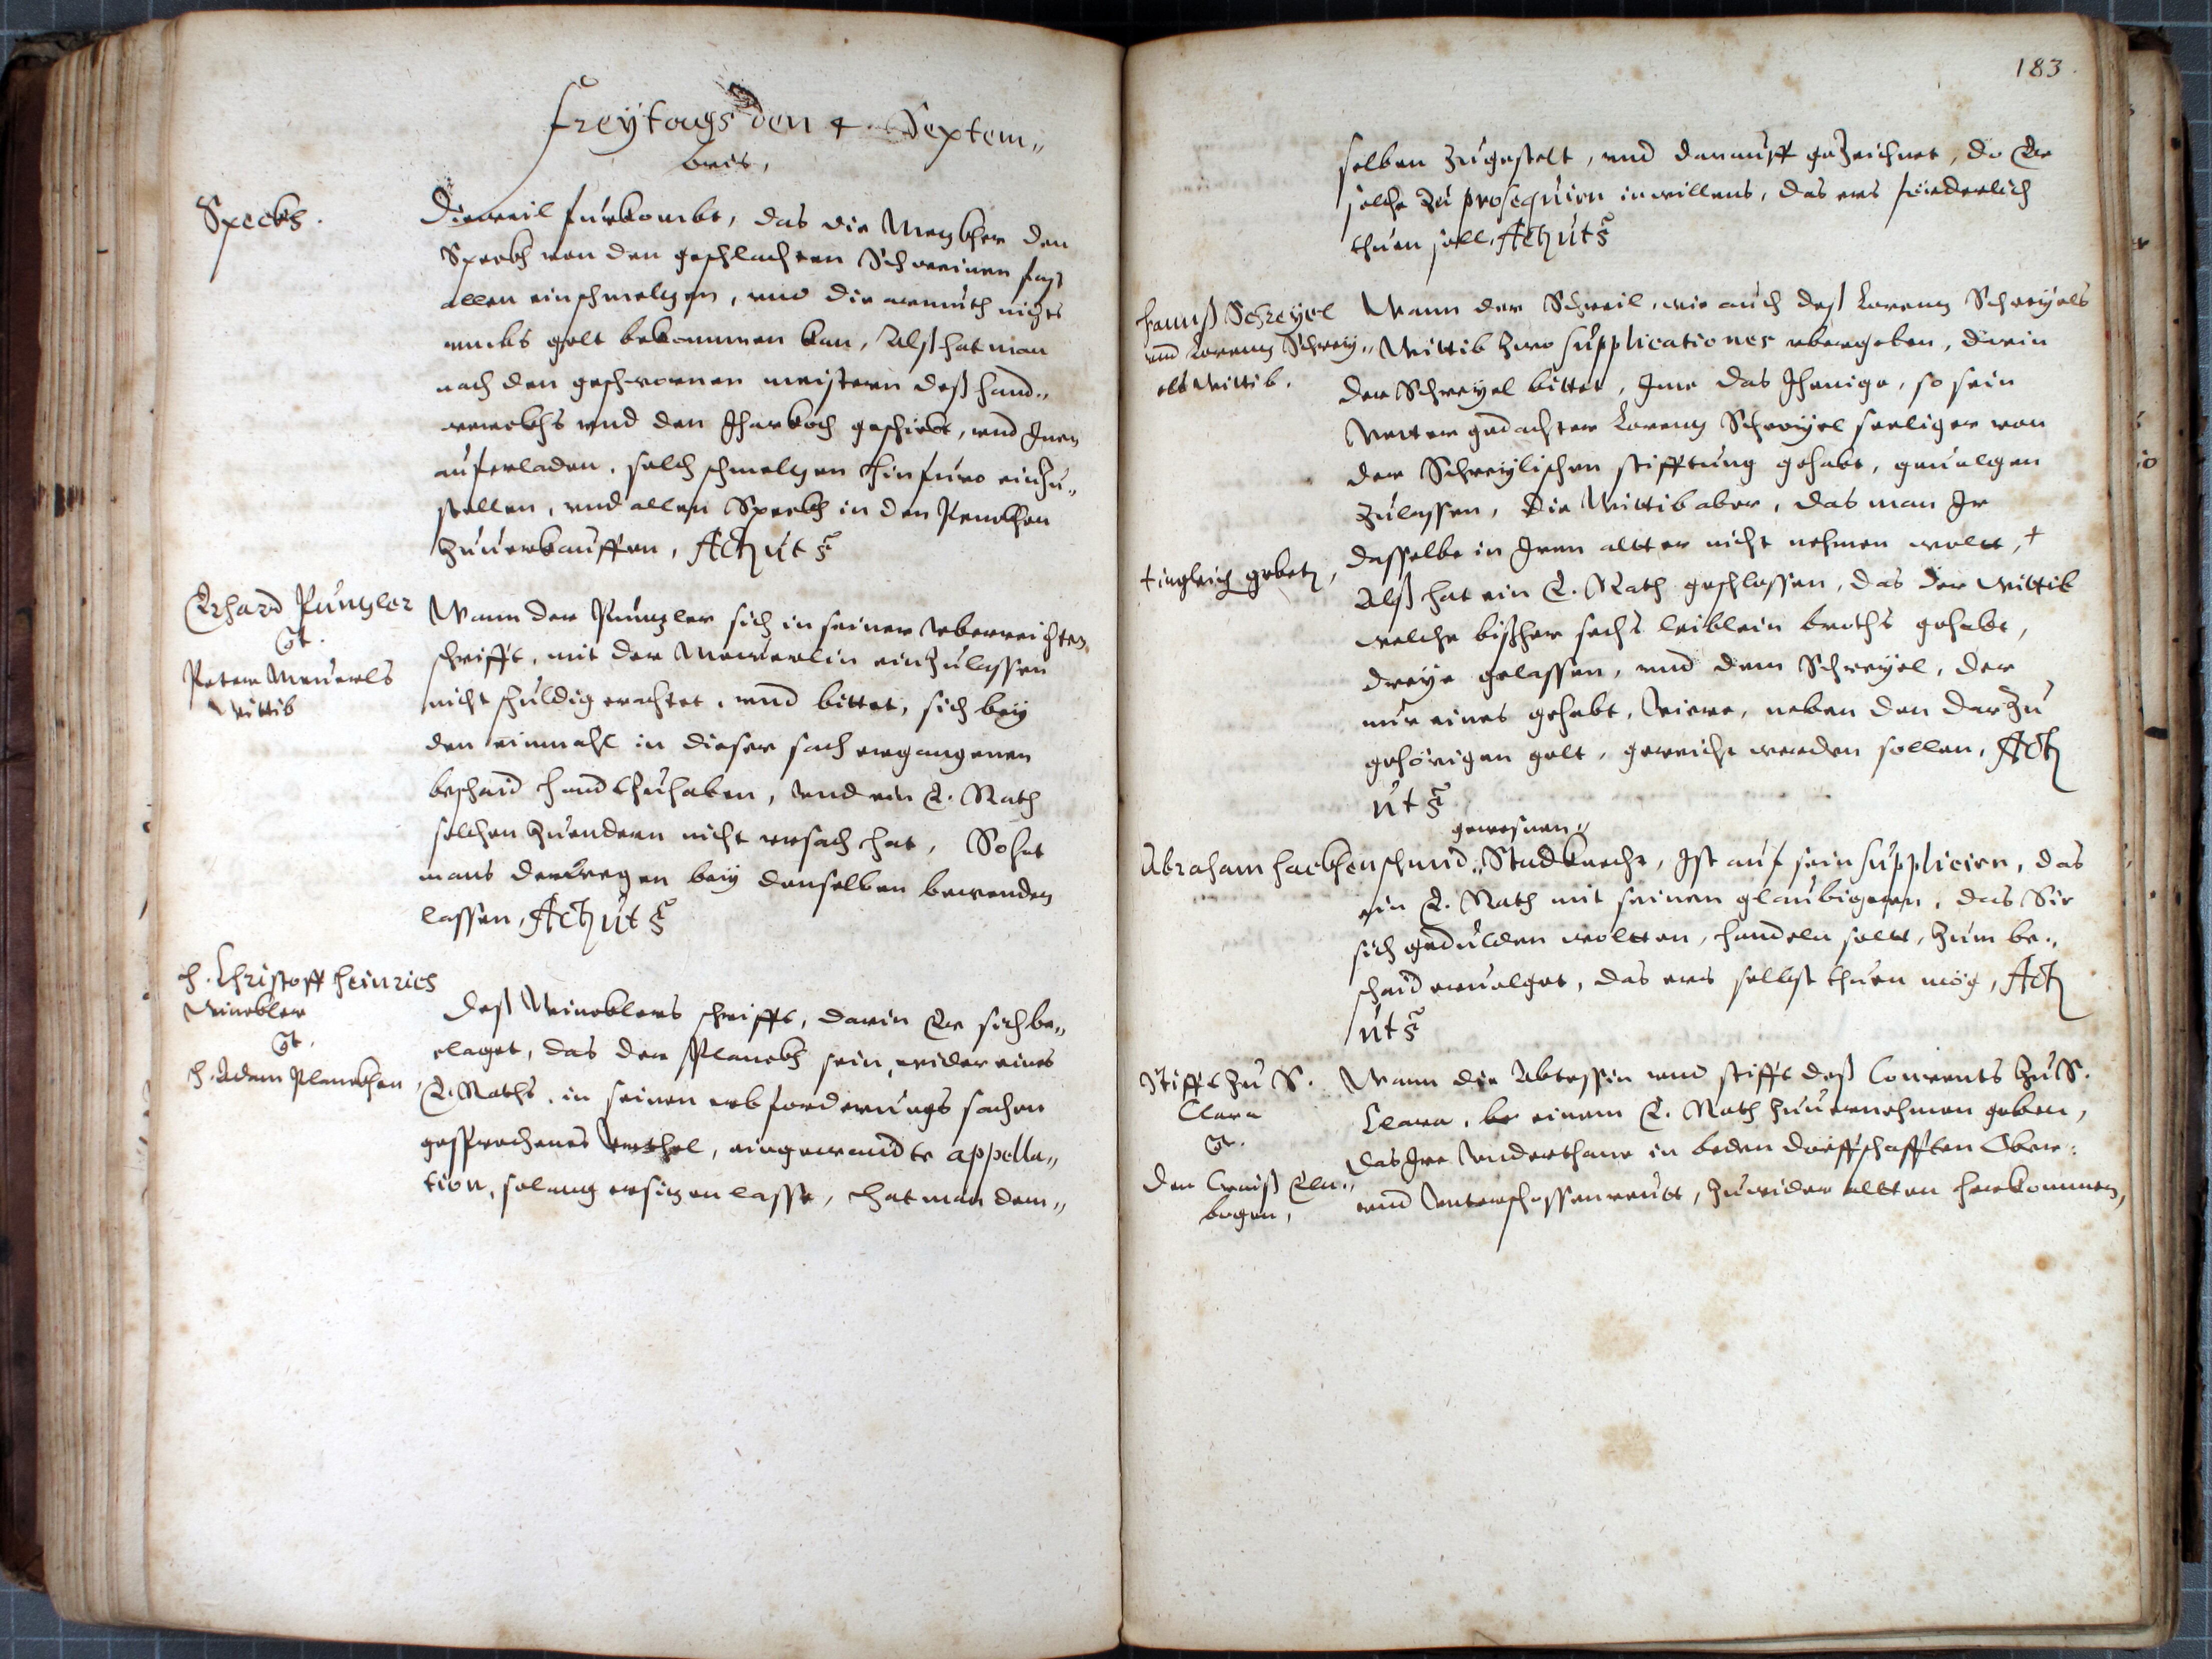 Freytags den 4. Septem„
bris,
Speckh.
Dieweil furkombt, das die Metzkher den
Speckh von den geschlachten Schweinen fast
allen einschmeltzen, und die armuth nichts
umbs gelt bekommen kan, Alß hat man
nach den geschwornen meistern deß hand„
werckhs und den koch geschickt, und Inen
auferladen, solch schmeltzen hinfuro einzu„
stellen, und allen Speckh in den Penckhen
zuuerkauffen, Act ut s
Erhard Puntzler
ct.
Peter Meuerls
Wittib
Wann der Puntzler sich in seiner uberreichten
schrifft, mit der Meuerlin einzulassen
nicht schuldig erachtet, und bittet, sich bey
den einmahl in dieser sach ergangenen
beschaid handzuhaben, und ein E. Rath
solchen zuendern nicht ursach hat, So hat
mans derwegen bey denselben bewenden
lassen, Act ut s
H. Christoff Heinrich
Winckler
ct.
H. Adam Planckhen
Deß Wincklers schrifft, darin Er sich be„
claget, das der Planckh sein, wider eines
E. Raths, in seinen erbforderungs sachen
gesprochenes Urthel, eingewandte appella„
tion, solang ersitzen lasse, hat man dem„
183.
selben zugestelt, und darauff gezeichnet, do Er
solche zu prosequirn inwillens, das ers fürderlich
thuen soll, Act ut s
Hannß Schreyel
und Lorentz Schrey„
els Wittib.
Wann der Schreil, wie auch deß Lorentz Schreyels
Wittib zwo supplicationes ubergeben, darin
der Schreyel bittet, Ime das Jhenige, so sein
Vetter gedachter Lorentz Schreyel seeliger von
der Schreylischen stifftung gehabt, geuolgen
zulassen, Die Wittib aber, das man Ir
dasselbe in Irem altter nicht nehmen wolte, +
+ ingleich gebeten,
Alß hat ein E. Rath geschlossen, das der Wittib
welche bißher sechs leiblein broths gehabt,
dreye gelassen, und dem Schreyel, der
nur eines gehabt, Viere, neben den darzu
gehörigen gelt, gereicht werden sollen, Act
ut s
gewesnen„
Abraham Hackhenschmid„ Stadknecht, Ist auf sein supplicirn, das
ein E. Rath mit seinen glaubigern, das Sie
sich gedulden woltten, handeln solte, zum be„
schaid eruolget, das ers selbst thuen mög, Act
ut s
Stifft zu S.
Clara
ct.
Den Craiß Eln„
bogen,
Wann die Abtessin und stifft deß Convents zu S.
Clara, be einem E. Rath zuuernehmen geben,
das Ire Underthane in beden dorffschafften Ober„
und Unterschossenreutt, zuwider altten herkommen,